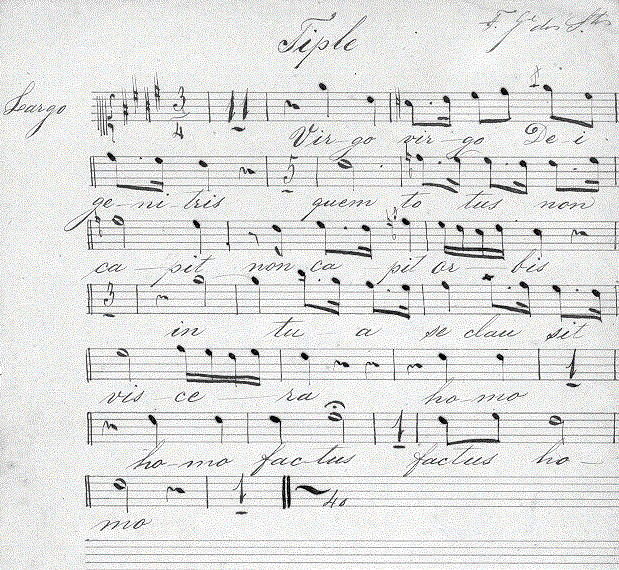 Tiple
F. Gs dos Stos
Largo 3/4 11
Vir-go vir-go De-i
5
ge-ni-tris quem to tus non
ca-pit-non ca pit or-bis
3
in tu a se clau sit
1
vis-ce-ra ho-mo
1
ho-mo factus factus ho-
1 40
mo